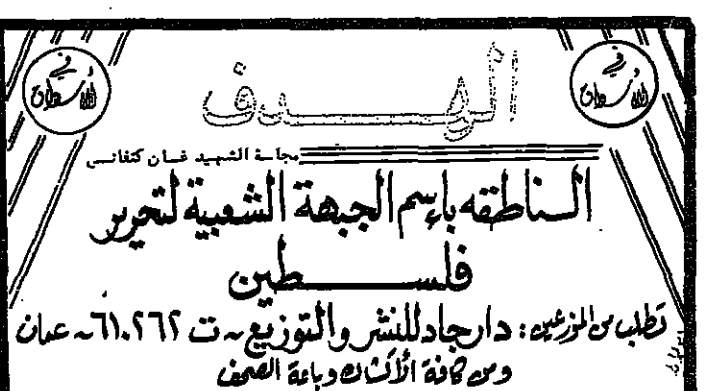 في الأسواق
في الأسواق
الهدف
مجلة الشهيد غسان كنفاني
الناطقه باسم الجبهة الشعبية لتحرير
فلسطين
تطلب من الموزعين : دار جاد للنشر والتوزيع - ت ٦١٠٢٦٢ - عمان
ومن كافة الأكشاك وباعة الصحف